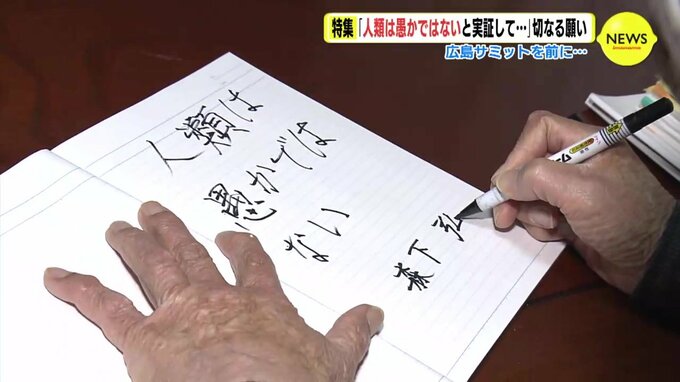 特集「人類は愚かではないと実証して…」切なる願い
広島サミットを前に…
NEWS
人類は
愚かでは
ない
森下弘